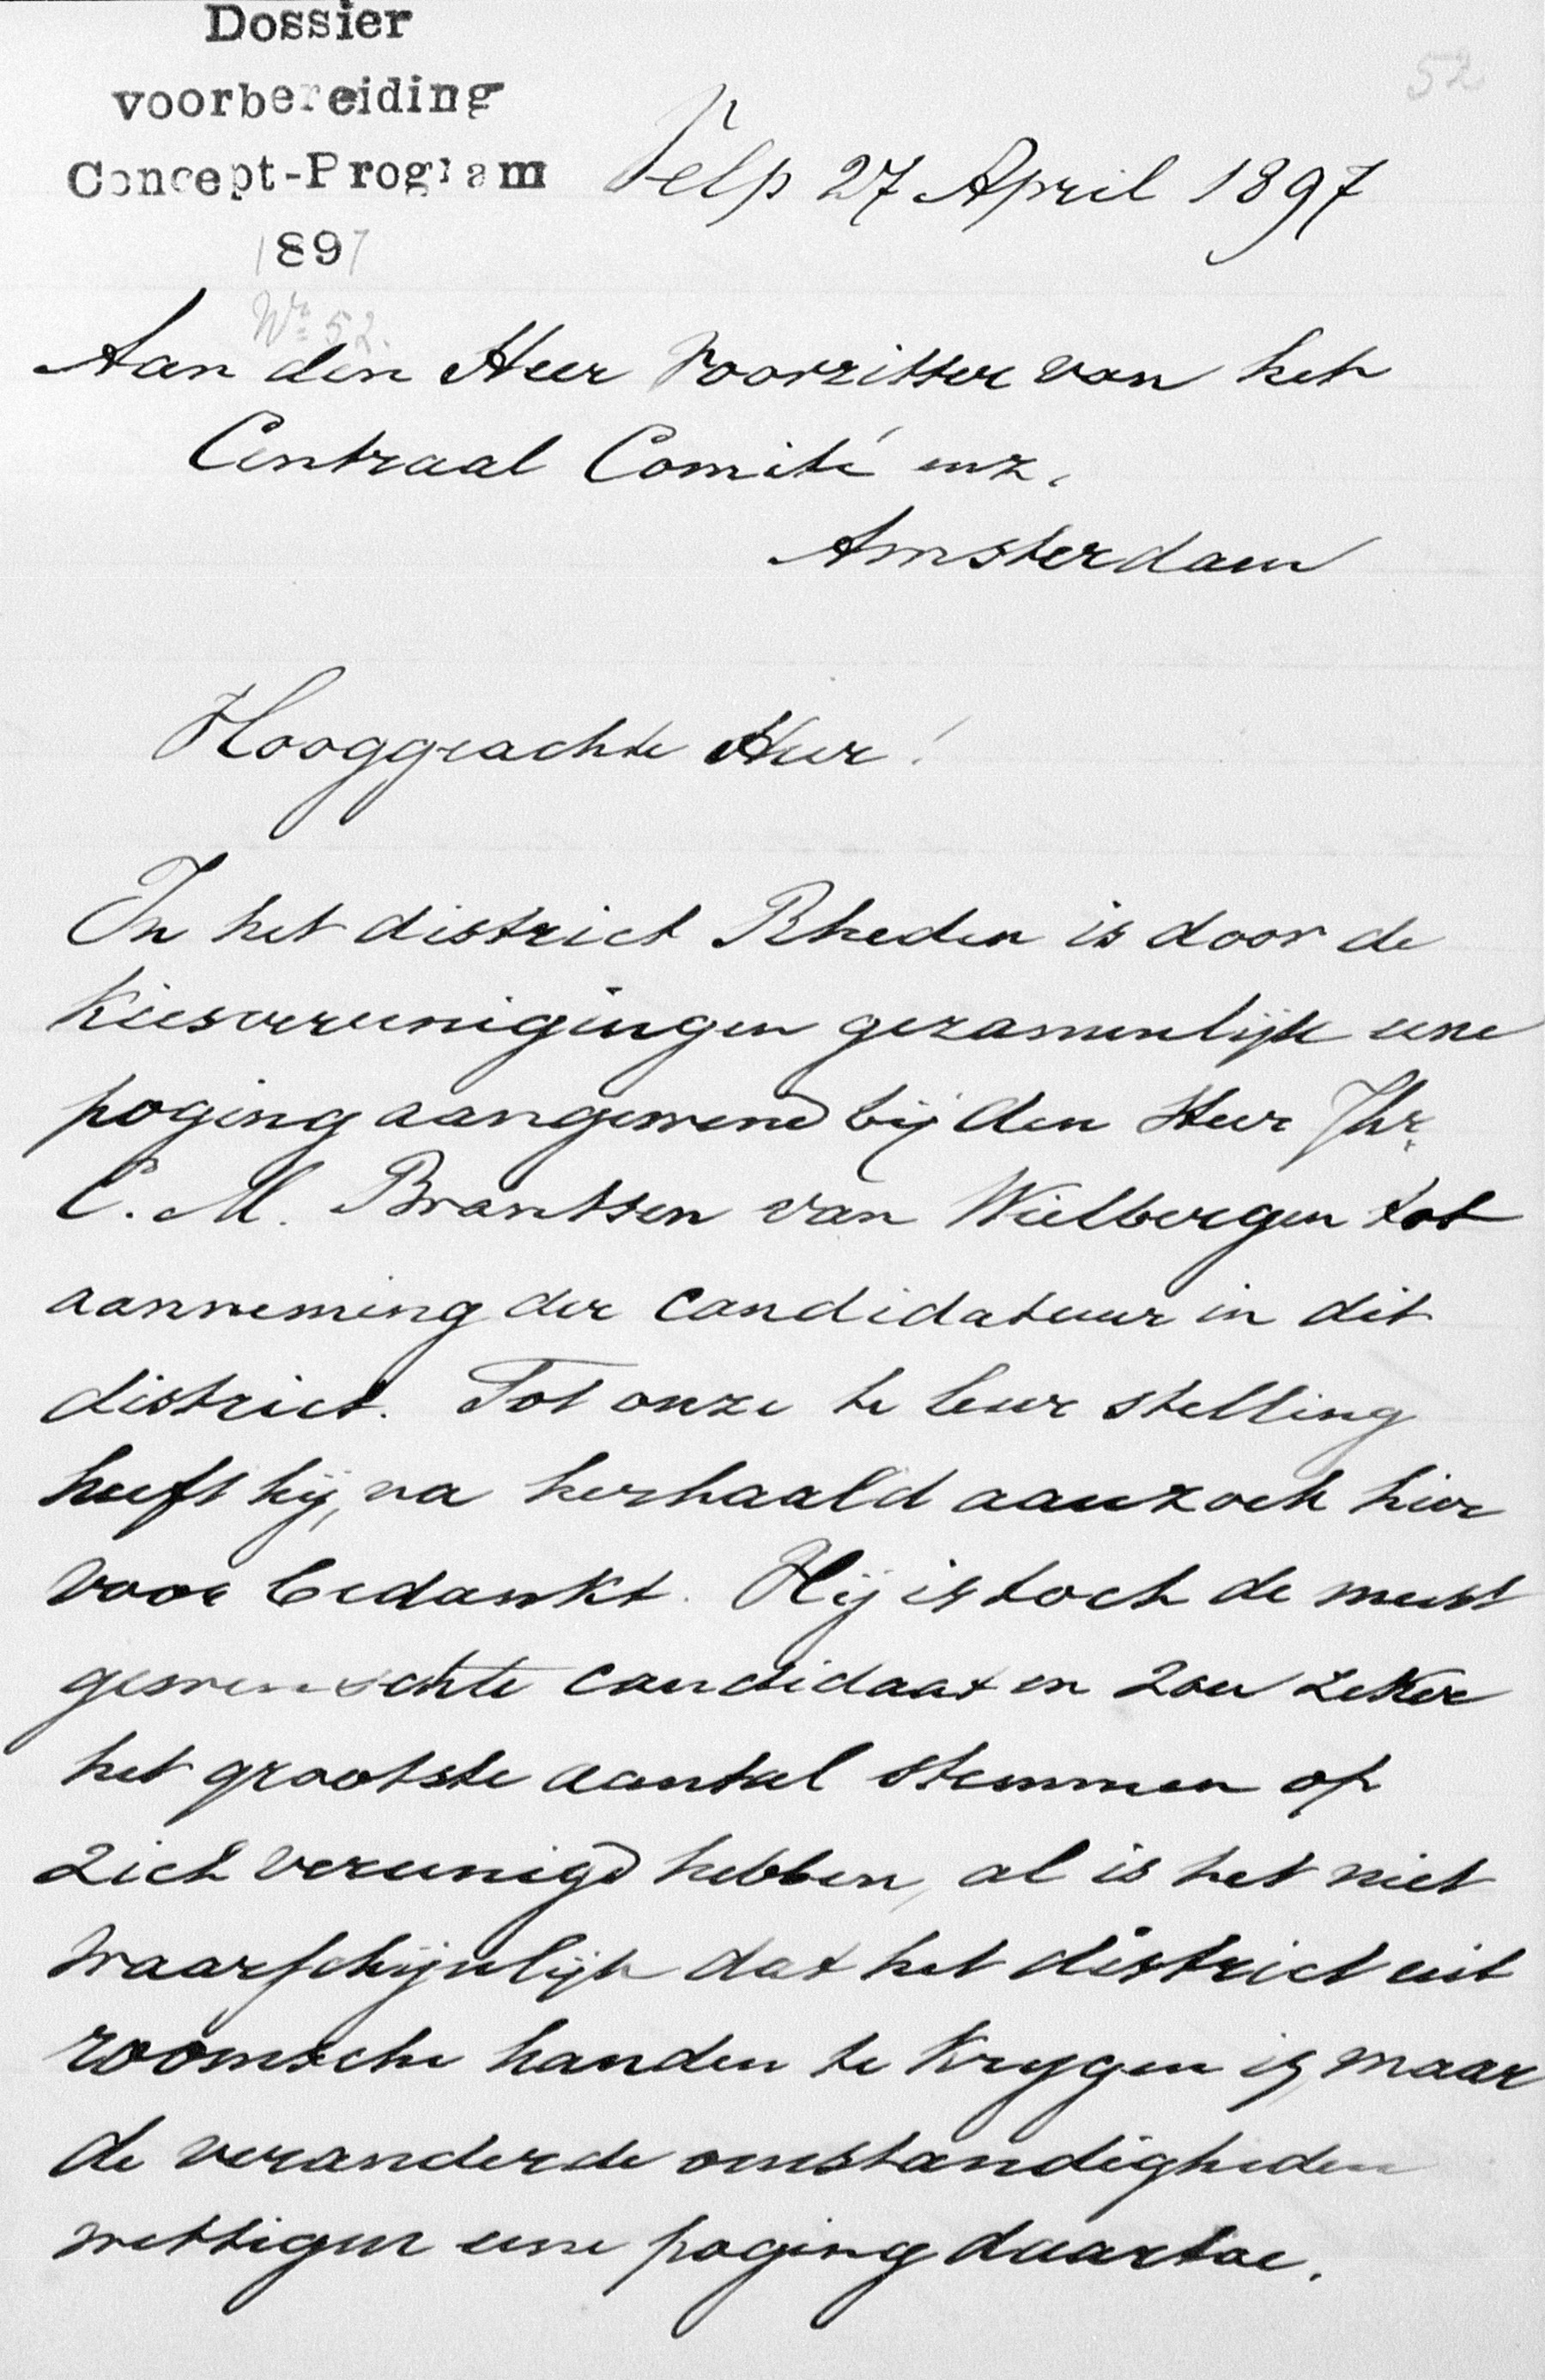 Dossier
voorbereiding
Concept-Program
1897
52
Velp 27 April 1897
Nr 52.
Aan den Heer Voorzitter van het
Centraal Comité enz.
Amsterdam
Hooggeachte Heer!
In het district Rheden is door de
Kiesvereenigingen gezamenlijk eene
poging aangewend bij den Heer Jhr.
C. M. Brantsen van Wielbergen tot
aanneming der candidatuur in dit
district. Tot onze te leur stelling
heeft hij, na herhaald aanzoek hier
voor bedankt. Hij is toch de meest
gewenschte candidaat en zou zeker
het grootste aantal stemmen op
zich vereenigd hebben, al is het niet
waarschijnlijk dat het district uit
roomsche handen te krygen is, maar
de veranderde omstandigheden
wettigen eene poging daartoe.